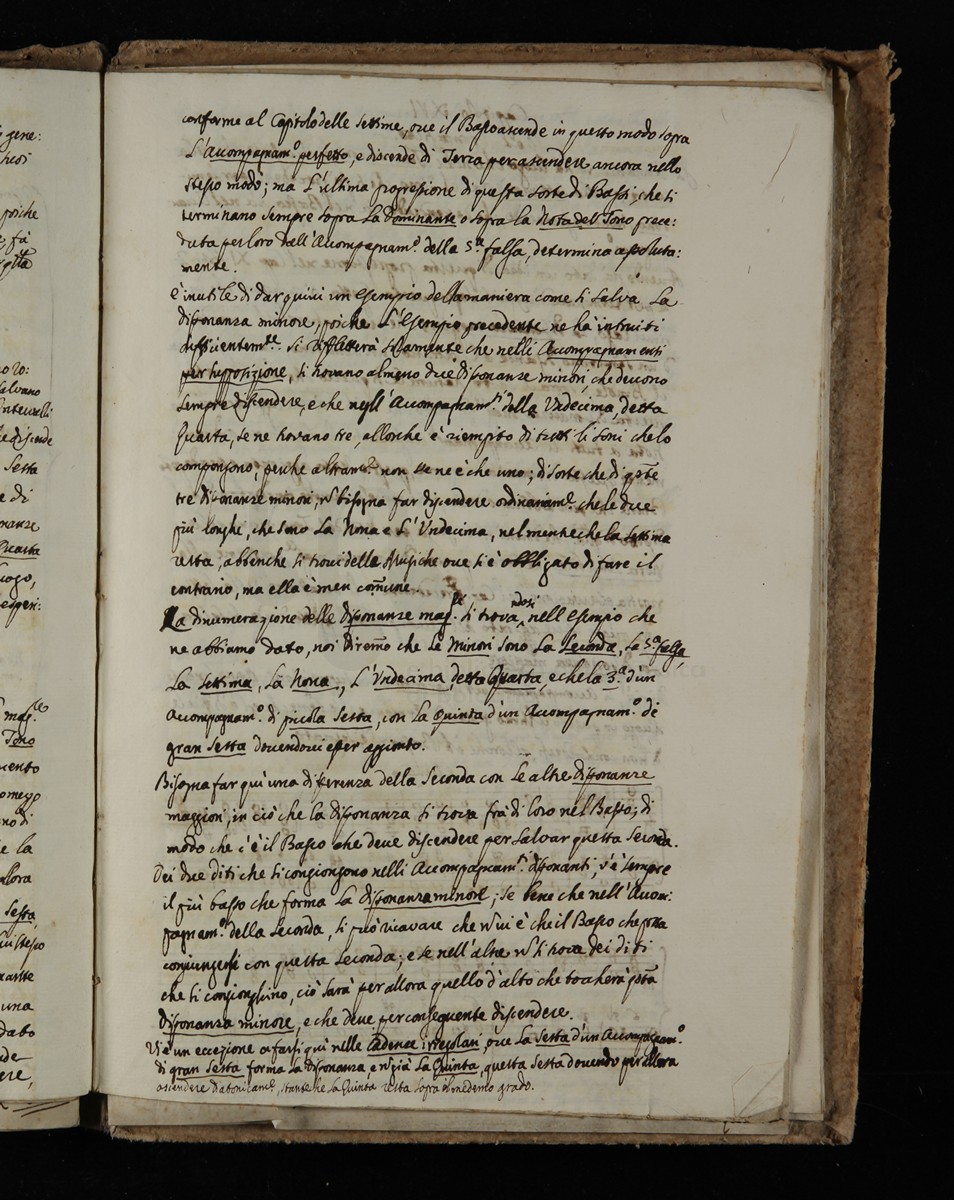 gene:
poiche
fà
20:
salvano
discende
Setta
e di
nanze
Quarta
uogo,
esperi:
mag.le
Tono
mento
no di
e la
allora
Sesta,
sui stesso
una
dato
ere,
conforme al Capitolo delle settime, ove il Basso ascende in questo modo sopra
L'Accompagnam.o perfetto, e discende di Terza per ascendere ancora nello
stesso modo; ma L'ultima progressione di questa sorte di Bassi, che si
terminano sempre sopra La Dominante o sopra la Nota del Tono prece:
duta per loro dall'Accompagnam.o della 5.a falsa, determina assoluta:
mente.
È inutile di dar quivi un Esempio della maniera come si Salva La
dissonanza minore, poiche L'Esempio precedente ne hà instruiti
sufficientem.te. Si rifletterà solamente che nelli Accompagnamenti
per supposizione, si trovano almeno due dissonanze minori, che devono
sempre discendere, e che negll'Accompagnam.ti della Vndecima, detta
Quarta, se ne trovano tre, allorche è riempito di tutti li soni che lo
compongono; perche altram.te non se ne è che uno; di sorte che di q.ste
tre dissonanze minori, vi bisogna far discendere ordinariam.te che le due
più longhe, che sono La Nona e L'Vndecima, nel mentre che la Settima
resta, abbenche si trovi delle Musiche ove si è obbligato di fare il
contrario, ma ella è men com̃une.
La dinumerazione delle dissonanze mag.li si trova ndosi nell'Esempio che
ne abbiamo dato, noi direm̃o che Le Minori sono La Seconda, La 5.a falsa,
La Settima, La Nona, L'Vndecima, detta Quarta, e che la 3.a d'un
Accompagnam.o di piccola Sesta, con La Quinta d'un Accompagnam.o di
gran Sesta dovendovi esser aggionto.
Bisogna far quì una differenza della Seconda con Le altre dissonanze
maggiori, in ciò che la dissonanza si trova frà di loro nel Basso; di
modo che c'è il Basso che deve discendere per salvar questa Seconda.
Dei due diti che si congiongono nelli Accompagnam.ti dissonanti, v'è sempre
il più basso che forma La dissonanza minore; se bene che nell'Accom:
pagnam.o della Seconda, si può ricavare che vi è che il Basso che possa
congiungersi con questa Seconda; e se nell'altre vi si trova dei diti
che si congionghino, ciò sarà per allora quello d'alto che toccherà q.sta
Dissonanza minore, e che deve per conseguente discendere.
Vi è un eccezione a farsi quì nelle Cadence irregolari, ove La Sesta d'un Accompagnam.o
di gran Sesta forma La dissonanza, e non già La Quinta, questa Sesta dovendo per allora
ascendere diatonicam.te, stante che La Quinta resta sopra il medemo grado.